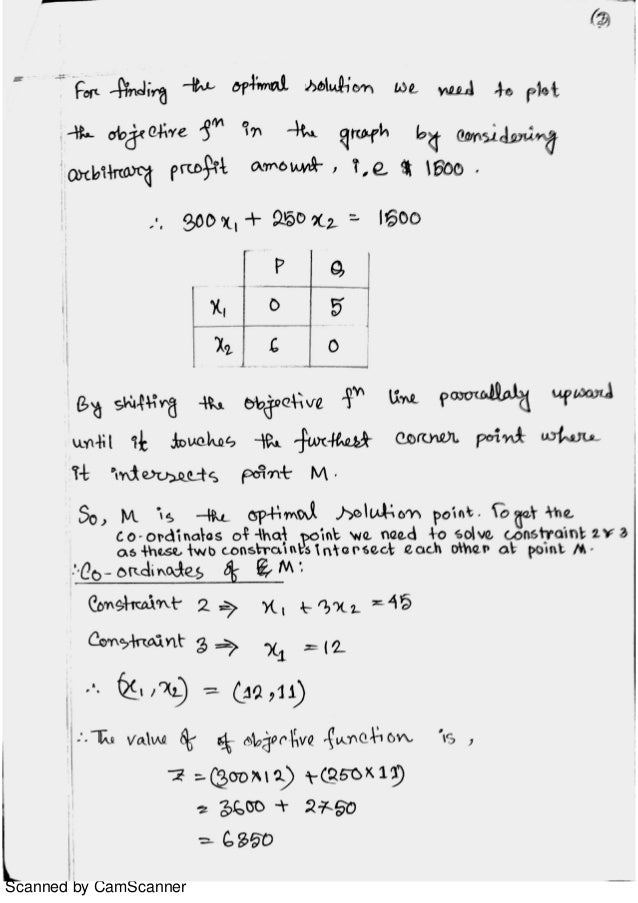 (3)
For finding the optimal solution we need to plot
the objective fn in the graph by considering
arbitrary profit amount, i.e $ 1500.
∴ 300x₁ + 250x₂ = 1500
P Q
x₁ 0 5
x₂ 6 0
By shifting the objective fn line parrallaly upward
until it touches the furthest corner point where
it intersects point M.
So, M is the optimal solution point. To get the
co-ordinates of that point we need to solve constraint 2 & 3
as these two constraints intersect each other at point M.
∴ Co-ordinates of M:
Constraint 2 ⇒ x₁ + 3x₂ = 45
Constraint 3 ⇒ x₁ = 12
∴ (x₁, x₂) = (12, 11)
∴ The value of of objective function is,
Z = (300×12) + (250×11)
= 3600 + 2750
= 6350
Scanned by CamScanner